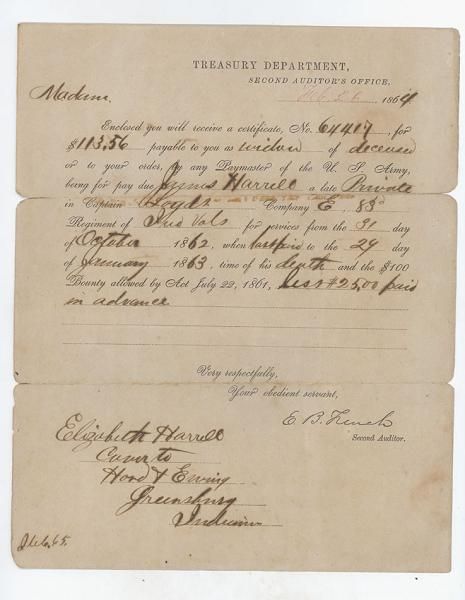 TREASURY DEPARTMENT,
SECOND AUDITOR'S OFFICE,
Feb. 26 1864
Madam.
Enclosed you will receive a certificate, No. 64417, for
$113,56 payable to you as widow of deceased
or to your order, by any Paymaster of the U. S. Army,
being for pay due James Harrell a late Private
in Captain Loyds Company E, 83d
Regiment of Ind Vols for services from the 31 day
of October 1862, when last paid to the 29 day
of January 1863, time of his death and the $100
Bounty allowed by Act July 22, 1861, less $25,00 paid
in advance
Very respectfully,
Your obedient servant,
E. B. French
Second Auditor.
Elizabeth Harrell
Care to
Hood & Ewing
Greensburg
Indiana